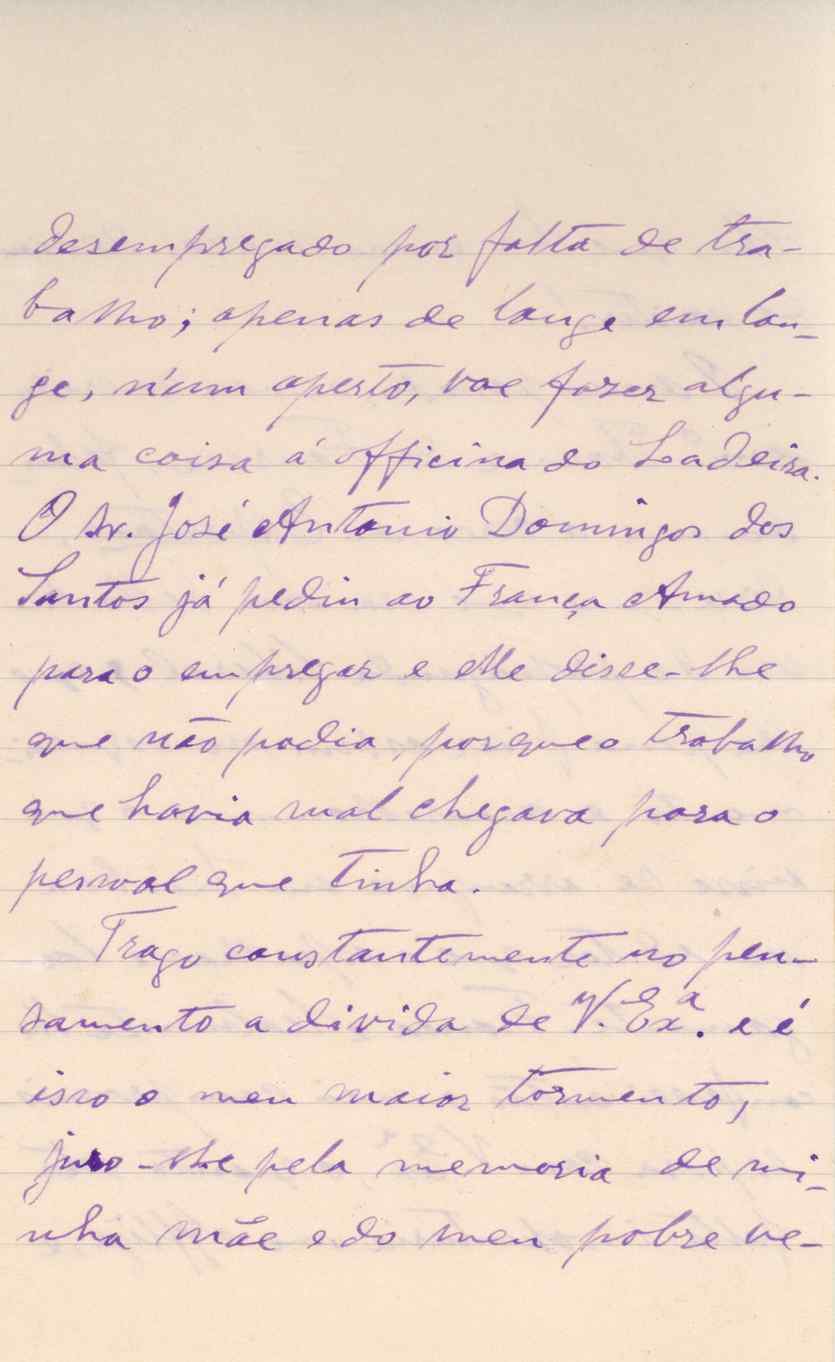 desempregado por falta de tra-
balho; apenas de longe em lon-
ge, n'um aperto, vae fazer algu-
ma coisa á officina do Ladeira.
O Sr. José Antonio Domingos dos
Santos já pediu ao França Amado
para o empregar e elle disse-lhe
que não podia, porque o trabalho
que havia mal chegava para o
pessoal que tinha.
Trago constantemente no pen-
samento a divida de V. Exª. e é
isso o meu maior tormento,
juro-lhe pela memoria de mi-
nha mãe e do meu pobre ve-